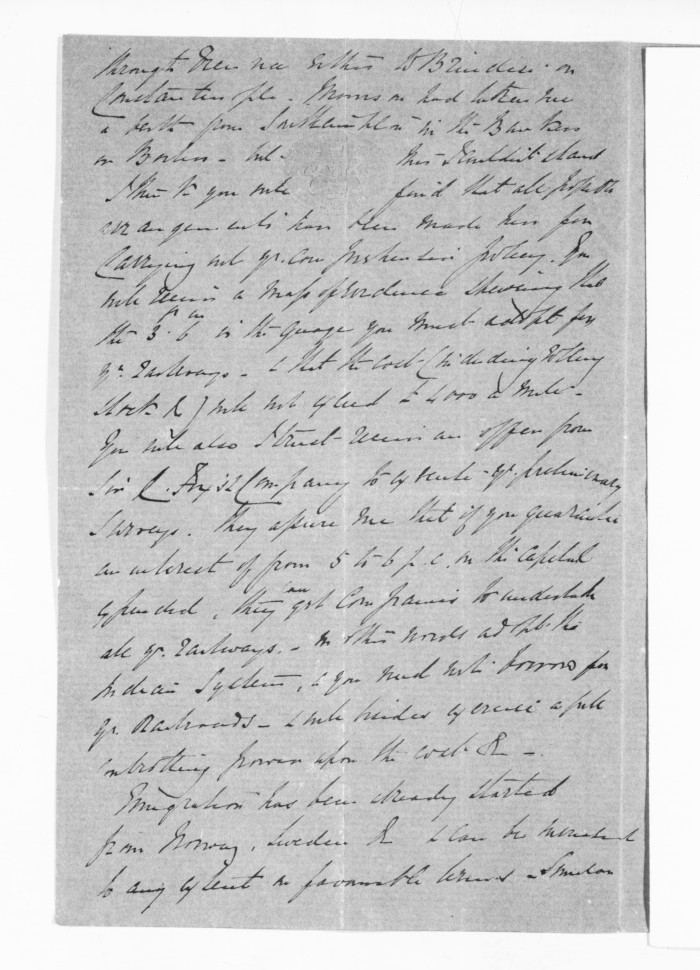 through Vienna either to Brindisi or
Constantinople. Morrison had taken me
a berth from Southampton in the
or - but this I couldn't stand
I think you will find that all possible
arrangements have been made here for
Carrying out yr. comprehensive policy. You
will receive a mass of evidence shewing that
the 3 ft 6 in is the guage you must adopt for
yr. railways - & that the cost (including rolling
stock &) will not exceed £4000 a mile -
You will also I trust receive an offer from
Sir C. Fox's Company to execute yr. preliminary
Surveys. They assure me that if you guarantee
an interest of from 5 to 6 p.c. on the capital
expended, they can get Companies to undertake
all yr. railways. - in other words adopt the
Indian System, & you need not borrow for
yr Railroads - & will besides exercise a full
controlling power upon the cost & -.
Emigration has been already started
from Norway, Sweden & & can be increased
to any extent on favourable terms - Similar